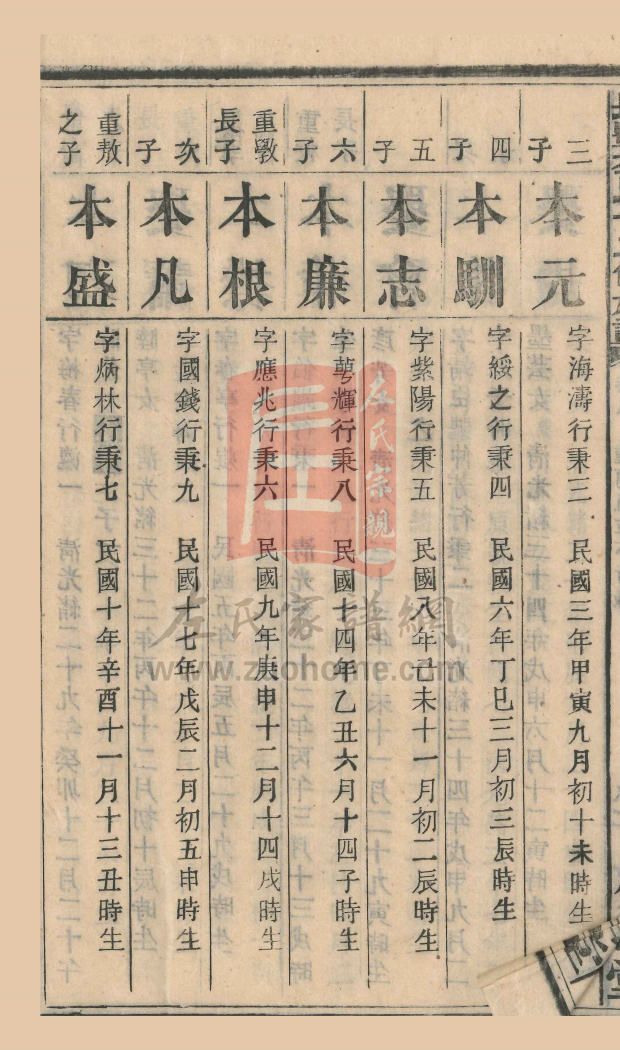 三子
本元
字海濤行秉三　民國三年甲寅九月初十未時生
四子
本馴
字綏之行秉四　民國六年丁巳三月初三辰時生
五子
本志
字紫陽行秉五　民國八年己未十一月初二辰時生
六子
本廉
字萼輝行秉八　民國十四年乙丑六月十四子時生
重斆長子
本根
字應兆行秉六　民國九年庚申十二月十四戌時生
次子
本凡
字國錢行秉九　民國十七年戊辰二月初五申時生
重敖之子
本盛
字炳林行秉七　民國十年辛酉十一月十三丑時生
左氏宗親
左氏家譜網
www.zuohome.com